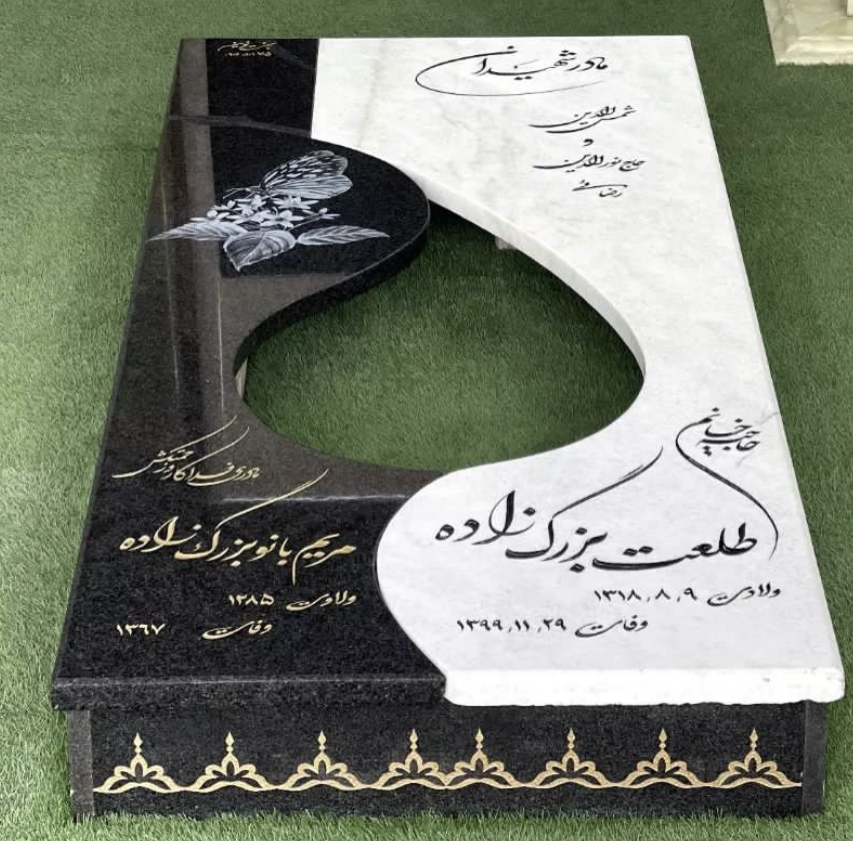 مادر شهیدان
شمس الدین
و
حاج نورالدین
رضائی
حاجیه خانم
طلعت بزرگ زاده
ولادت ۱۳۱۸٫۸٫۹
وفات ۱۳۹۹٫۱۱٫۲۹
مادری فداکار و زحمتکش
مریم بانو بزرگ زاده
ولادت ۱۲۸۵
وفات ۱۳۶۷